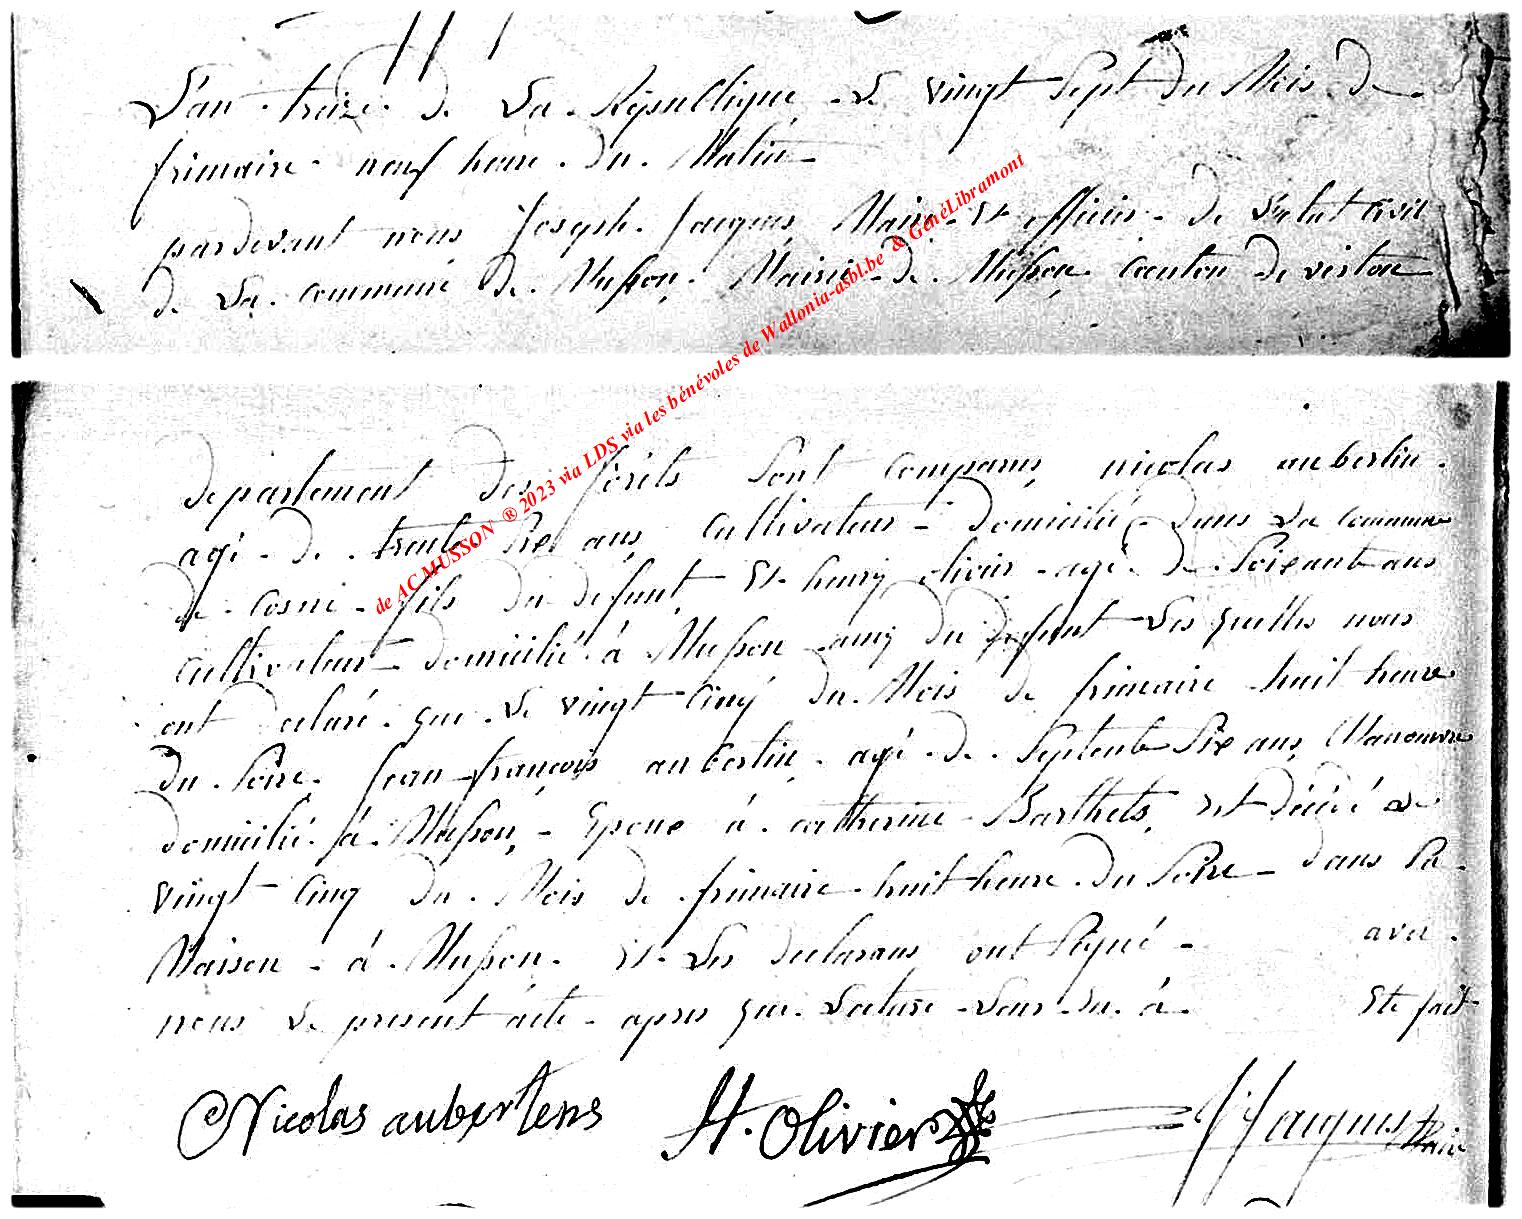 L'an treize de La République Le vingt Sept du Mois de
frimaire neuf heure du Matin
pardevant nous Joseph Jacques Maire Et officier de L'etat Civil
de La commune de Musson Mairie de Musson Canton de virton
departement des forêts Sont comparus nicolas aubertin
agé de trente Six ans Cultivateur domicilié dans La commune
de Cosne fils du défunt Et henry olivier agé de Soixante ans
Cultivateur domicilié à Musson amy du defunt Les quelles nous
ont declaré que Le vingt Cinq du Mois de frimaire huit heure
du Soire Jean françois aubertin agé de Septente Six ans Manouvre
domicilié à Musson Epoux à catherine Barthets est décédé Le
vingt Cinq du Mois de frimaire huit heure du Soire dans Sa
Maison à Musson Et Les declarans ont Signé avec
nous Le present acte apres que Lecture Leur En à Eté fait
Nicolas aubertens H. Olivier J Jacques Maire
de AC MUSSON ® 2023 via LDS via les bénévoles de Wallonia-asbl.be & GénéLibramont